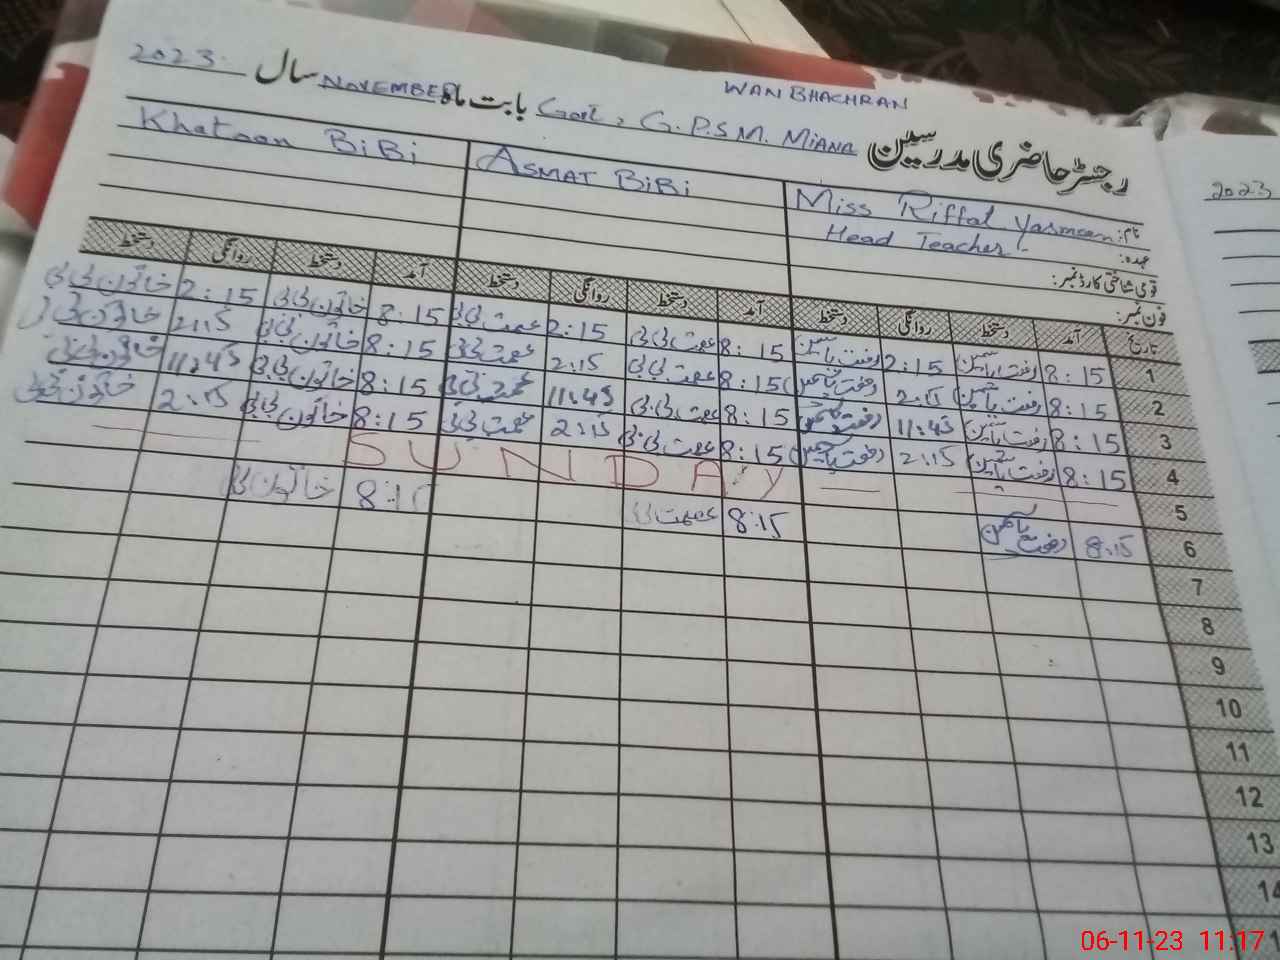 WAN BHACHRAN
رجسٹر حاضری مدرسین Govt, G.P.S M. MIANA بابت ماہ NOVEMBER سال 2023
2023
نام: Miss Riffat Yasmeen ASMAT BIBI Khatoon BiBi
عہدہ: Head Teacher
قومی شناختی کارڈ نمبر:
فون نمبر:
تاریخ آمد دستخط روانگی دستخط آمد دستخط روانگی دستخط آمد دستخط روانگی دستخط
1 8:15 رفعت یاسمین 2:15 رفعت یاسمین 8:15 عصمت بی بی 2:15 عصمت بی بی 8:15 خاتون بی بی 2:15 خاتون بی بی
2 8:15 رفعت یاسمین 2:15 رفعت یاسمین 8:15 عصمت بی بی 2:15 عصمت بی بی 8:15 خاتون بی بی 2:15 خاتون بی بی
3 8:15 رفعت یاسمین 11:45 رفعت یاسمین 8:15 عصمت بی بی 11:45 عصمت بی بی 8:15 خاتون بی بی 11:45 خاتون بی بی
4 8:15 رفعت یاسمین 2:15 رفعت یاسمین 8:15 عصمت بی بی 2:15 عصمت بی بی 8:15 خاتون بی بی 2:15 خاتون بی بی
5 SUNDAY
6 8:15 رفعت یاسمین 8:15 عصمت بی بی 8:15 خاتون بی بی
7
8
9
10
11
12
13
14
06-11-23 11:17